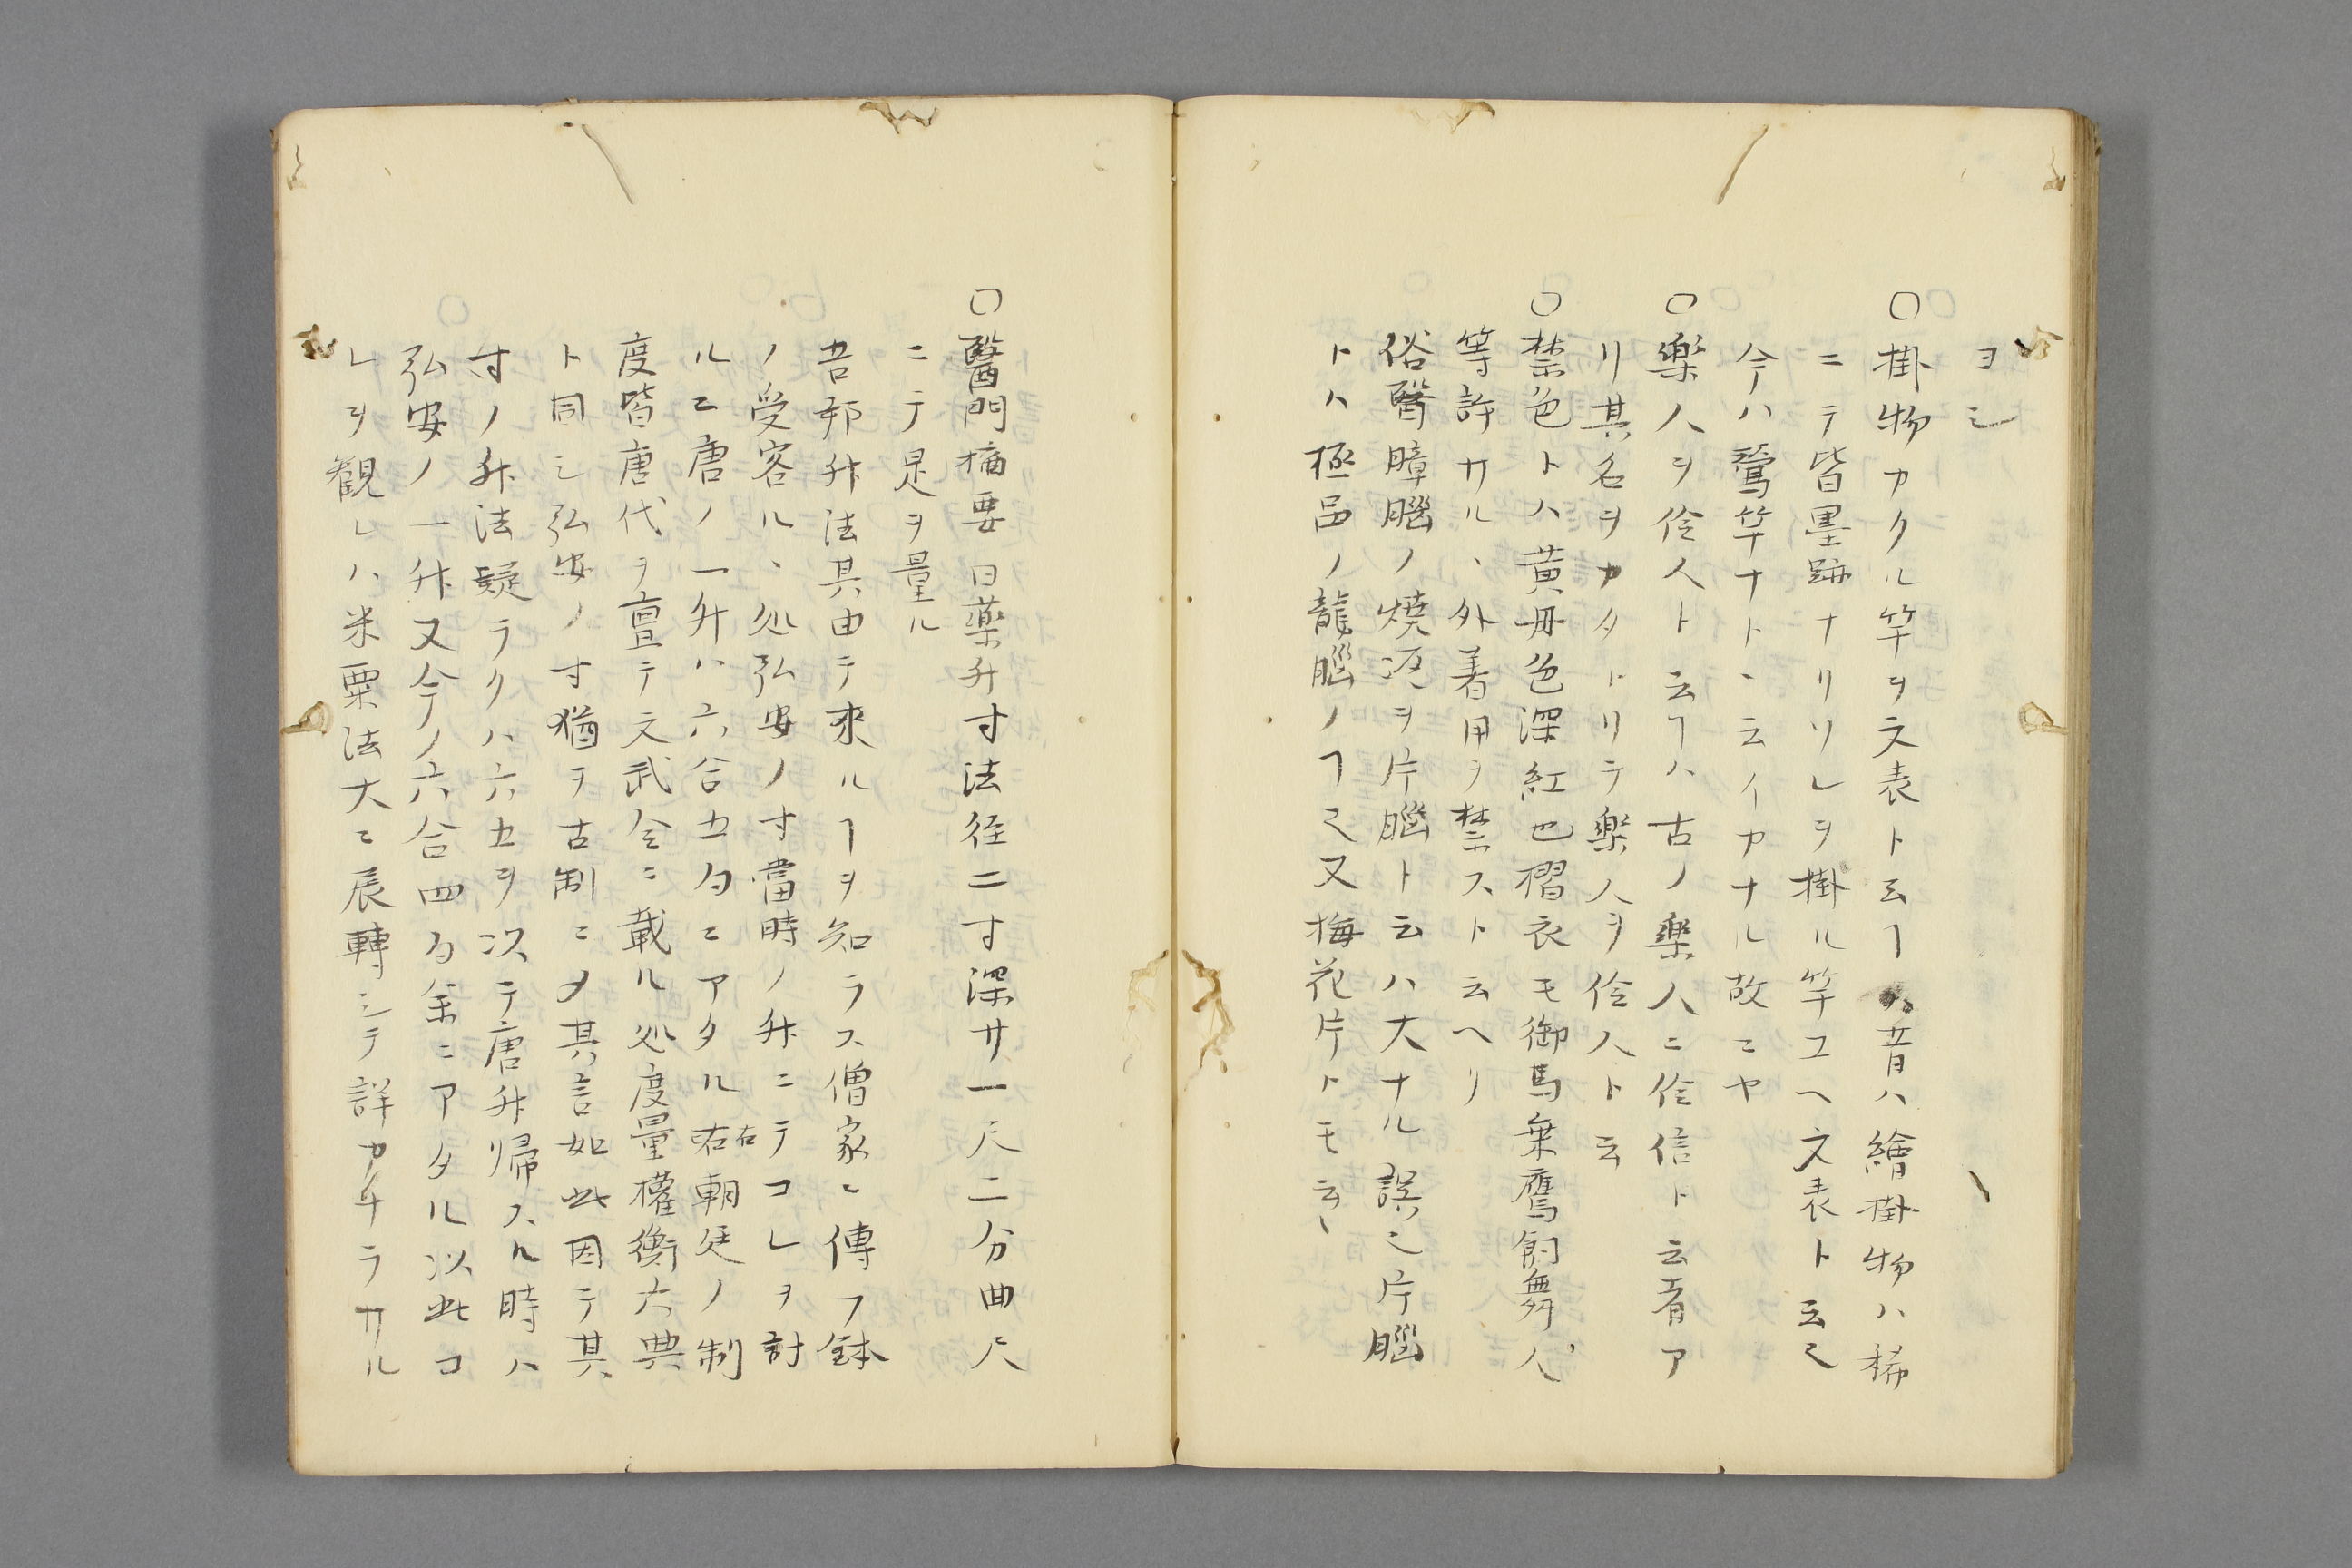 ヨシ
○掛物カクル竿ヲ文表ト云ヿハ昔ハ繪掛物ハ稀
ニテ皆墨跡ナリソレヲ掛ル竿ユヘ文表ト云々
今ハ鶯竿ナトヽ云イカナル故ニヤ
○樂人ヲ伶人ト云ヿハ古ノ樂人ニ伶信ト云者ア
リ其名ヲカタトリテ樂人ヲ伶人ト云
○禁色トハ黄丹色深紅也褶衣モ御馬乗鷹飼舞人
等許サルヽ外着用ヲ禁スト云ヘリ
俗醫膵腦ノ燒返ヲ片腦ト云ハ大ナル誤也片腦
トハ極品ノ龍腦ノヿ也又梅花片トモ云
○醫門摘要曰藥升寸法径二寸深サ一尺二分曲尺
ニテ是ヲ量ル
吾邦升法其由テ來ルヿヲ知ラス僧家ニ傳フ鉢
ノ受容ルヽ処弘安ノ寸當時ノ升ニテコレヲ討
ルニ唐ノ一升ハ六合五勺ニアタル右右朝廷ノ制
度皆唐代ヲ亶テ文武令ニ載ル処度量權衡六典
ト同シ弘安ノ寸猶ヲ古制ニメ其言如此因テ其
寸ノ升法疑ラクハ六五ヲ以テ唐升帰スル時ハ
弘安ノ一升又今ノ六合四勺余ニアタル以此コ
レヲ観レハ米粟法大ニ展轉シテ詳カナラサル